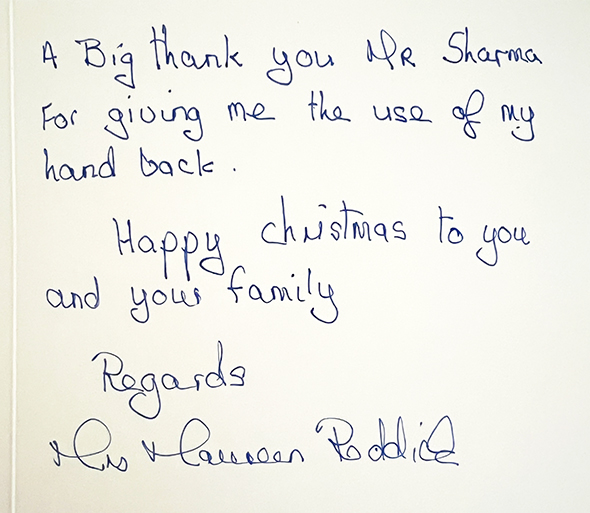 A Big thank you Mr Sharma
For giving me the use of my
hand back.
Happy christmas to you
and your family
Regards
Mrs Maureen Roddick